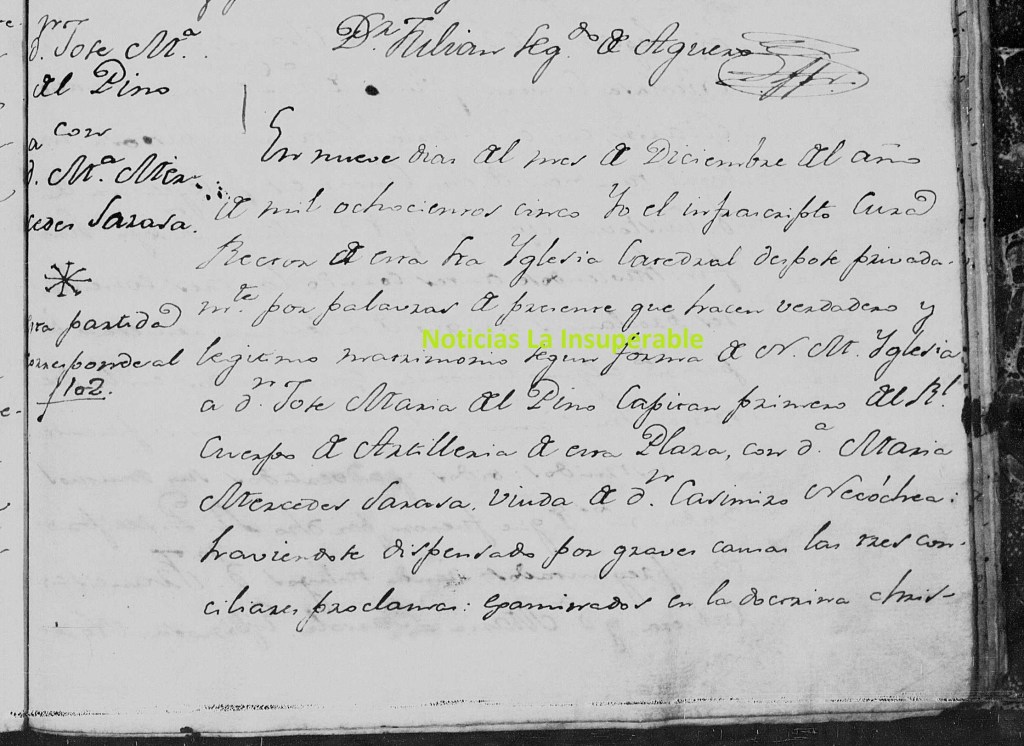 Dr. Julian Segdo. de Aguero
dn. Jose Ma.
del Pino
con
d. Ma. Mer-
cedes Sarasa.
partida
corresponde al
102.
En nueve dias del mes de Diciembre del año
de mil ochocientos cinco Yo el infrascripto Cura
Rector de esta Sta Yglesia Catedral despose privada-
mte. por palabras de presente que hacen verdadero y
legitimo matrimonio segun forma de N. M. Yglesia
a dn. Jose Maria del Pino Capitan primero del Rl.
Cuerpo de Artilleria de esta Plaza, con da. Maria
Mercedes Sarasa, viuda de dn. Casimiro Necóchea:
haviendose dispensado por graves causas las tres con-
ciliares proclamas: examinados en la doctrina chris-
Noticias La Insuperable